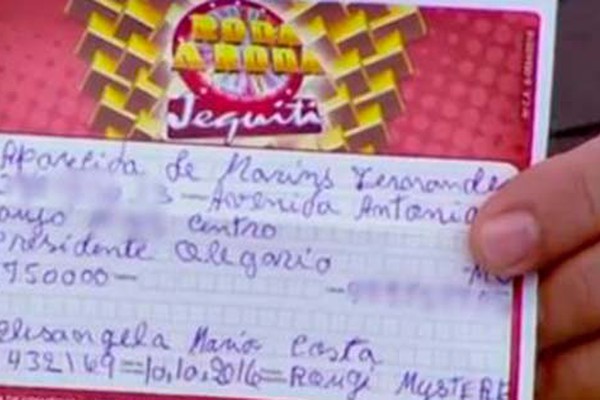 RODA
A RODA
Jequiti
Aparecida de Marins Fernandes
3 - Avenida Antonio
Centro
Presidente Olegario MG
750000 -
Elisangela Maria Costa
432169 = 10.10.2016 = ROUGI MYSTERE